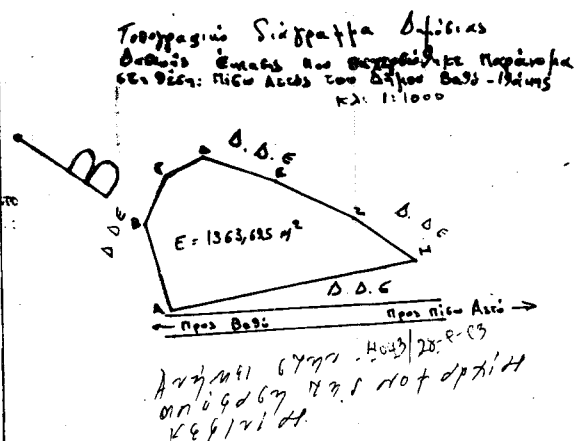 Τοπογραφικό διάγραμμα Δημόσιας
Δασικής έκτασης που εκχερσώθηκε παράνομα
στη θέση: Πίσω Αετός του Δήμου Βαθύ - Ιθάκης
κλ: 1:1000
Δ. Δ. Ε
Δ
Γ
Ε
Β
Δ Δ Ε
Ζ
Δ. Δ Ε
Ε = 1363,625 m²
Η
Δ. Δ. Ε
Α
← Προς Βαθύ
Προς Πίσω Αετό →
Ανήκει στην
απόφαση της